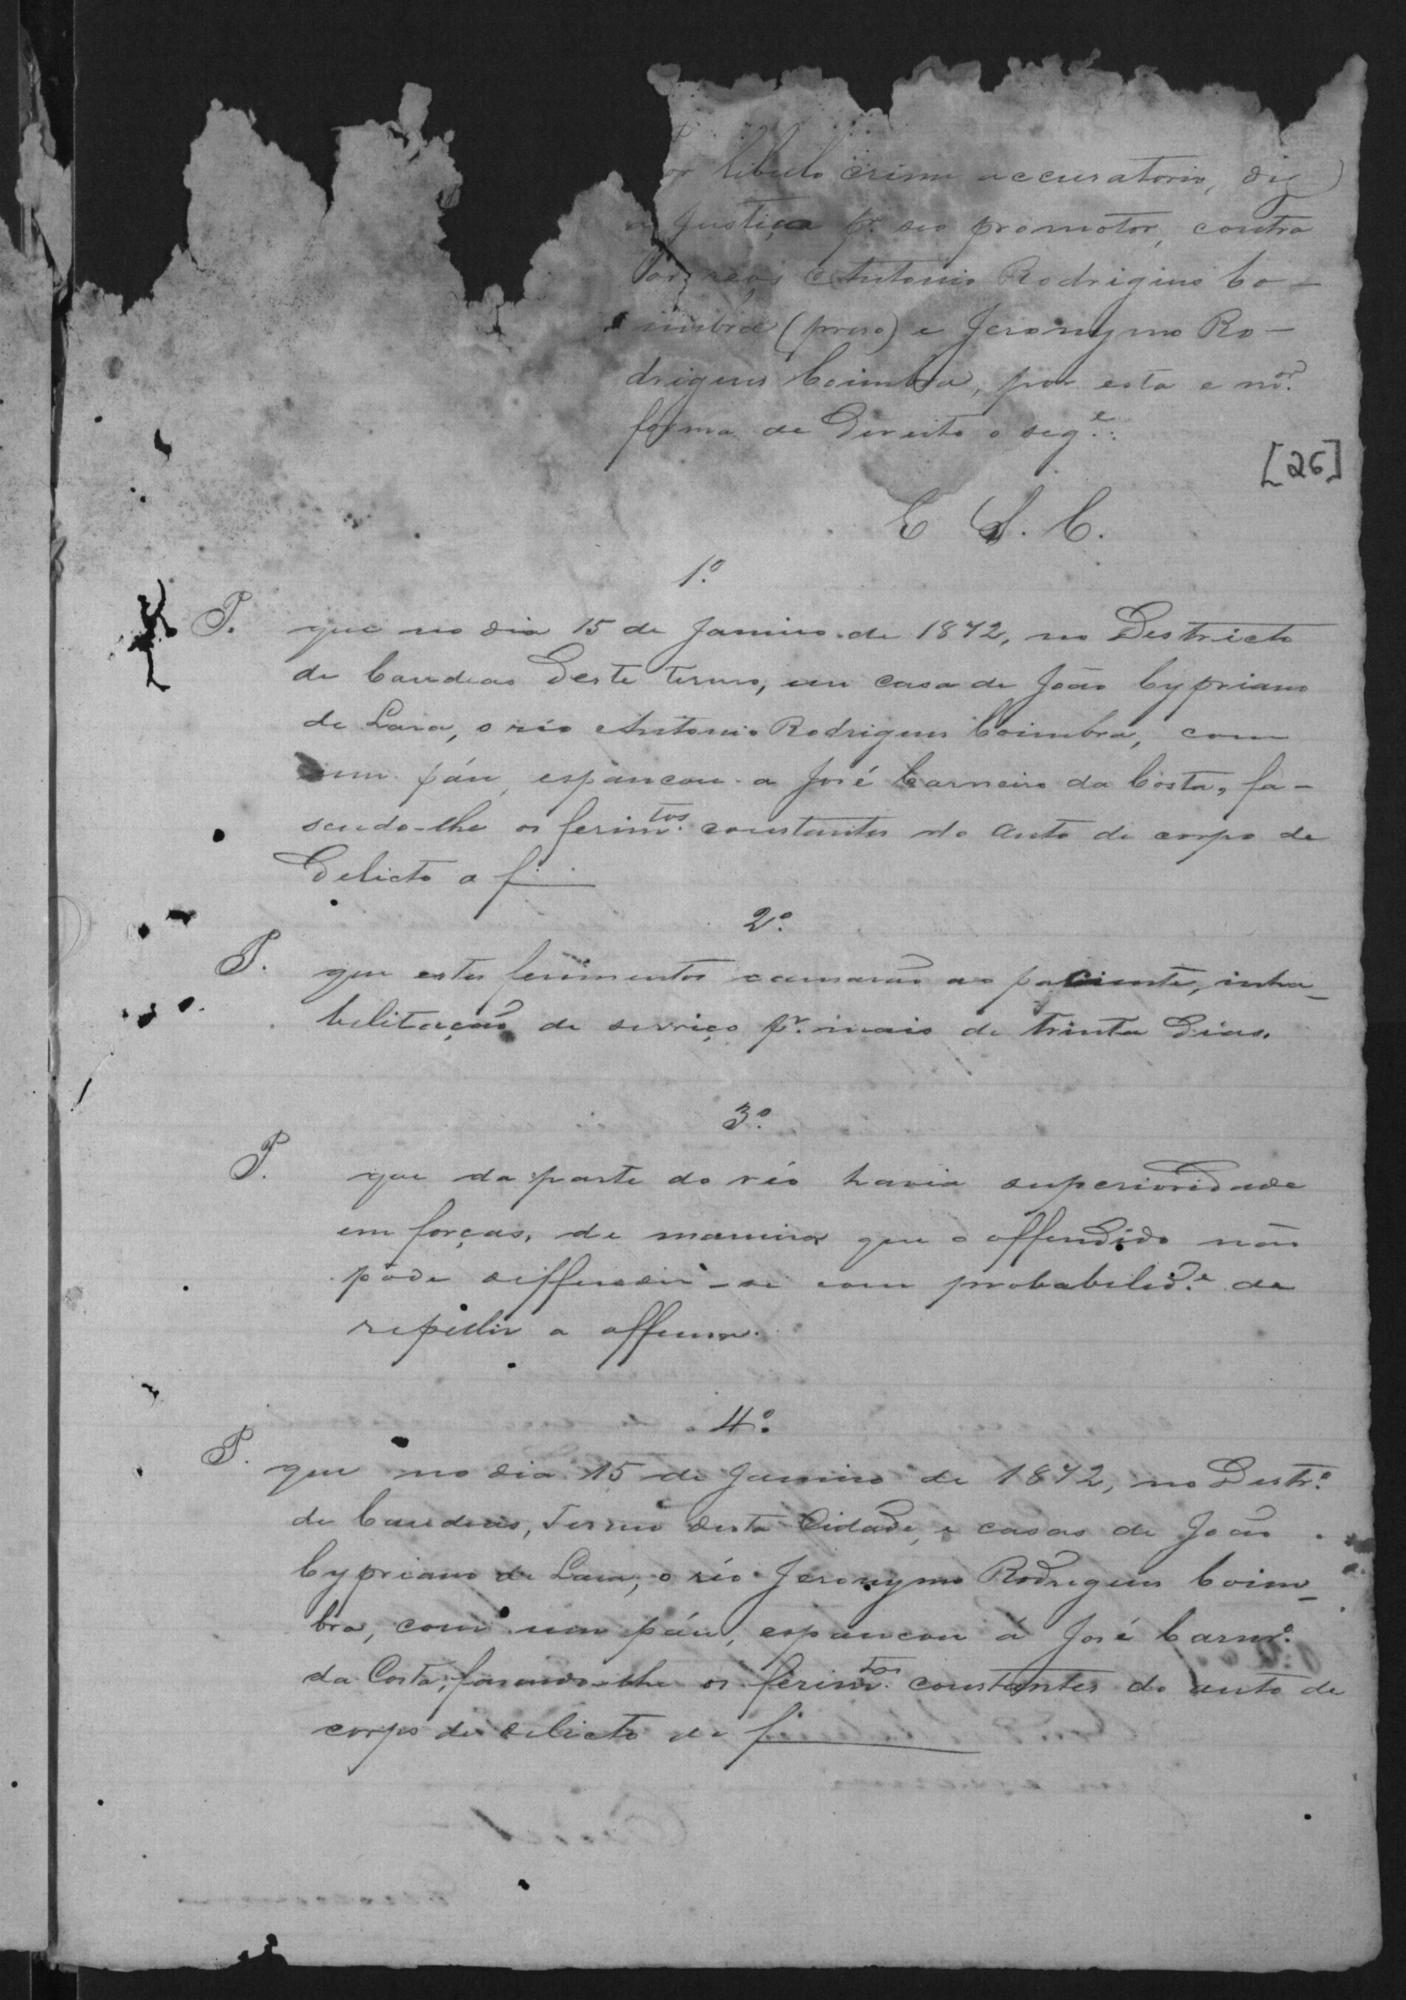 or libello crime accusatorio, diz
a Justiça pr. seo promotor, contra
os réos Antonio Rodrigues Co-
imbra (preso) e Jeronymo Ro-
drigues Coimbra, por esta e mor.
forma de Direito o sege.:
[26]
E S. C.
1º
P. que no dia 15 de Janeiro de 1872, no Destricto
de Candeas deste termo, em casa de João Cypriano
de Lara, o réo Antonio Rodrigues Coimbra, com
um páu, espancou a José Carneiro da Costa, fa-
sendo-lhe os ferimtos. constantes do auto de corpo de
Delicto a f
2º
P. que estes ferimentos causarão ao paciente, inha-
bilitação de serviço pr. mais de trinta dias.
3º
P. que da parte do réo havia superioridade
em forças, de maneira que o offendido não
pôde deffender-se com probabilide. de
repellir a offensa.
4º
P. que no dia 15 de Janeiro de 1872, no Destro.
de Candeas, Termo desta Cidade, e casas de João
Cypriano de Lara, o réo Jeronymo Rodrigues Coim-
bra, com um páu, espancou á José Carnro.
da Costa, fasendo-lhe os ferimtos. constantes do auto de
corpo de delicto de f